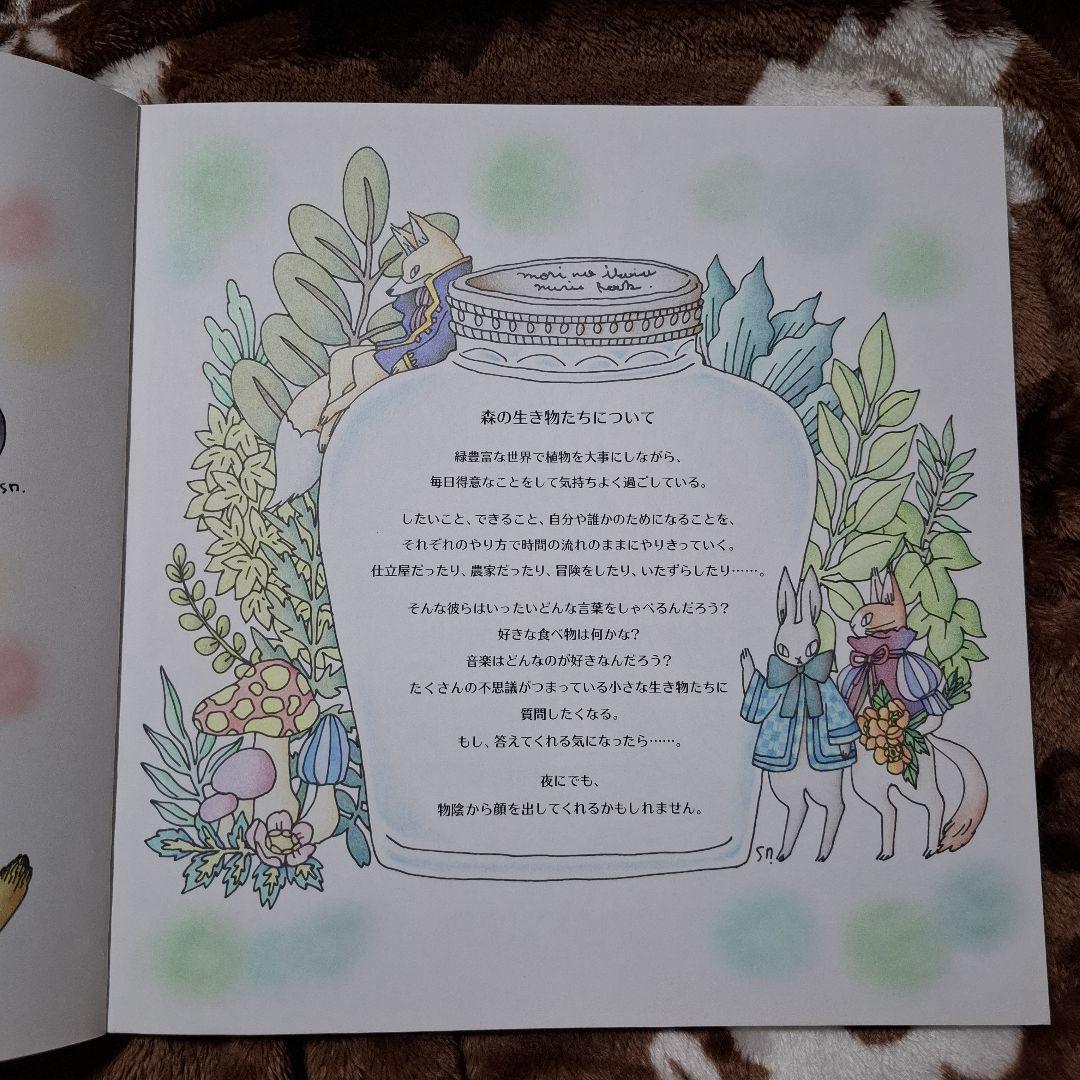 mori no
森の生き物たちについて
緑豊富な世界で植物を大事にしながら、
毎日得意なことをして気持ちよく過ごしている。
したいこと、できること、自分や誰かのためになることを、
それぞれのやり方で時間の流れのままにやりきっていく。
仕立屋だったり、農家だったり、冒険をしたり、いたずらしたり……。
そんな彼らはいったいどんな言葉をしゃべるんだろう?
好きな食べ物は何かな?
音楽はどんなのが好きなんだろう?
たくさんの不思議がつまっている小さな生き物たちに
質問したくなる。
もし、答えてくれる気になったら……。
夜にでも、
物陰から顔を出してくれるかもしれません。
sn.
sn.